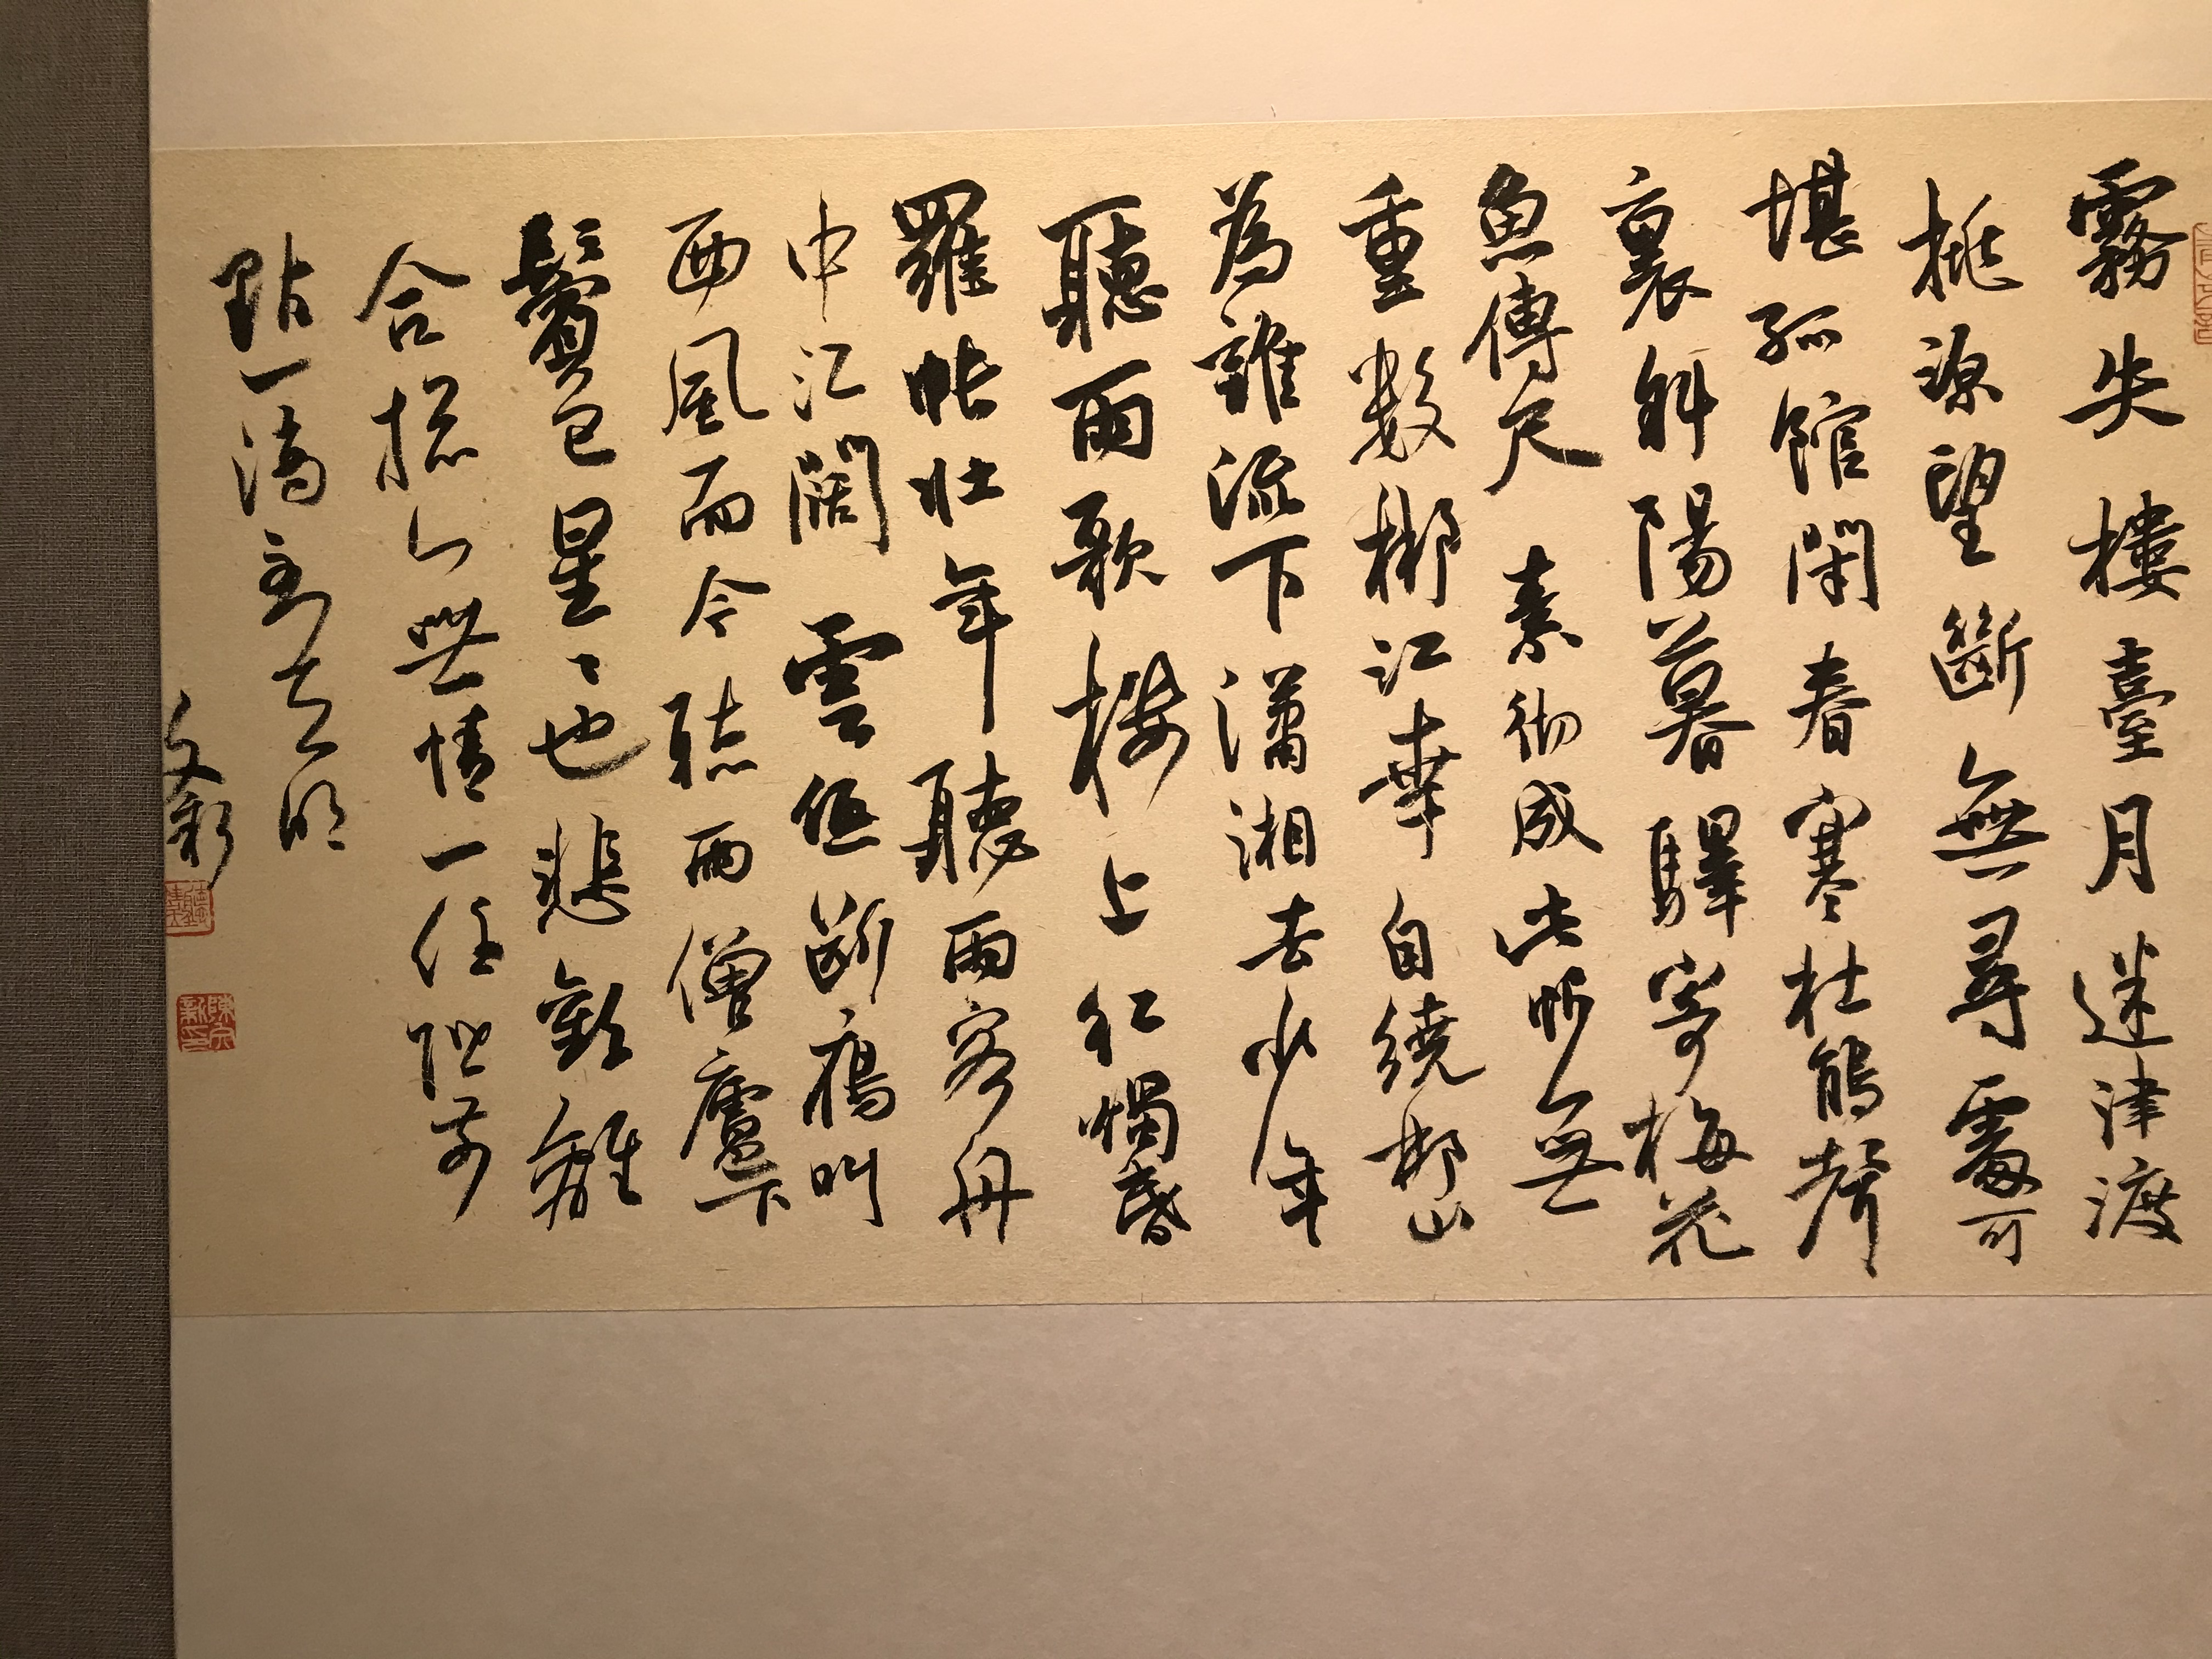 霧失樓臺月迷津渡
桃源望斷無尋處可
堪孤館閑春寒杜鵑聲
裏斜陽暮驛寄梅花
魚傳尺素彻成此恨無
重数郴江幸自繞郴山
為誰流下瀟湘去少年
聽雨歌樓上红燭昏
羅帐壮年聽雨客舟
中江闊雲低断雁叫
西風而今聴雨僧廬下
鬢已星〻也悲歡離
合揔〻無情一任阶前
點一滴到天明
文新
陳文新印